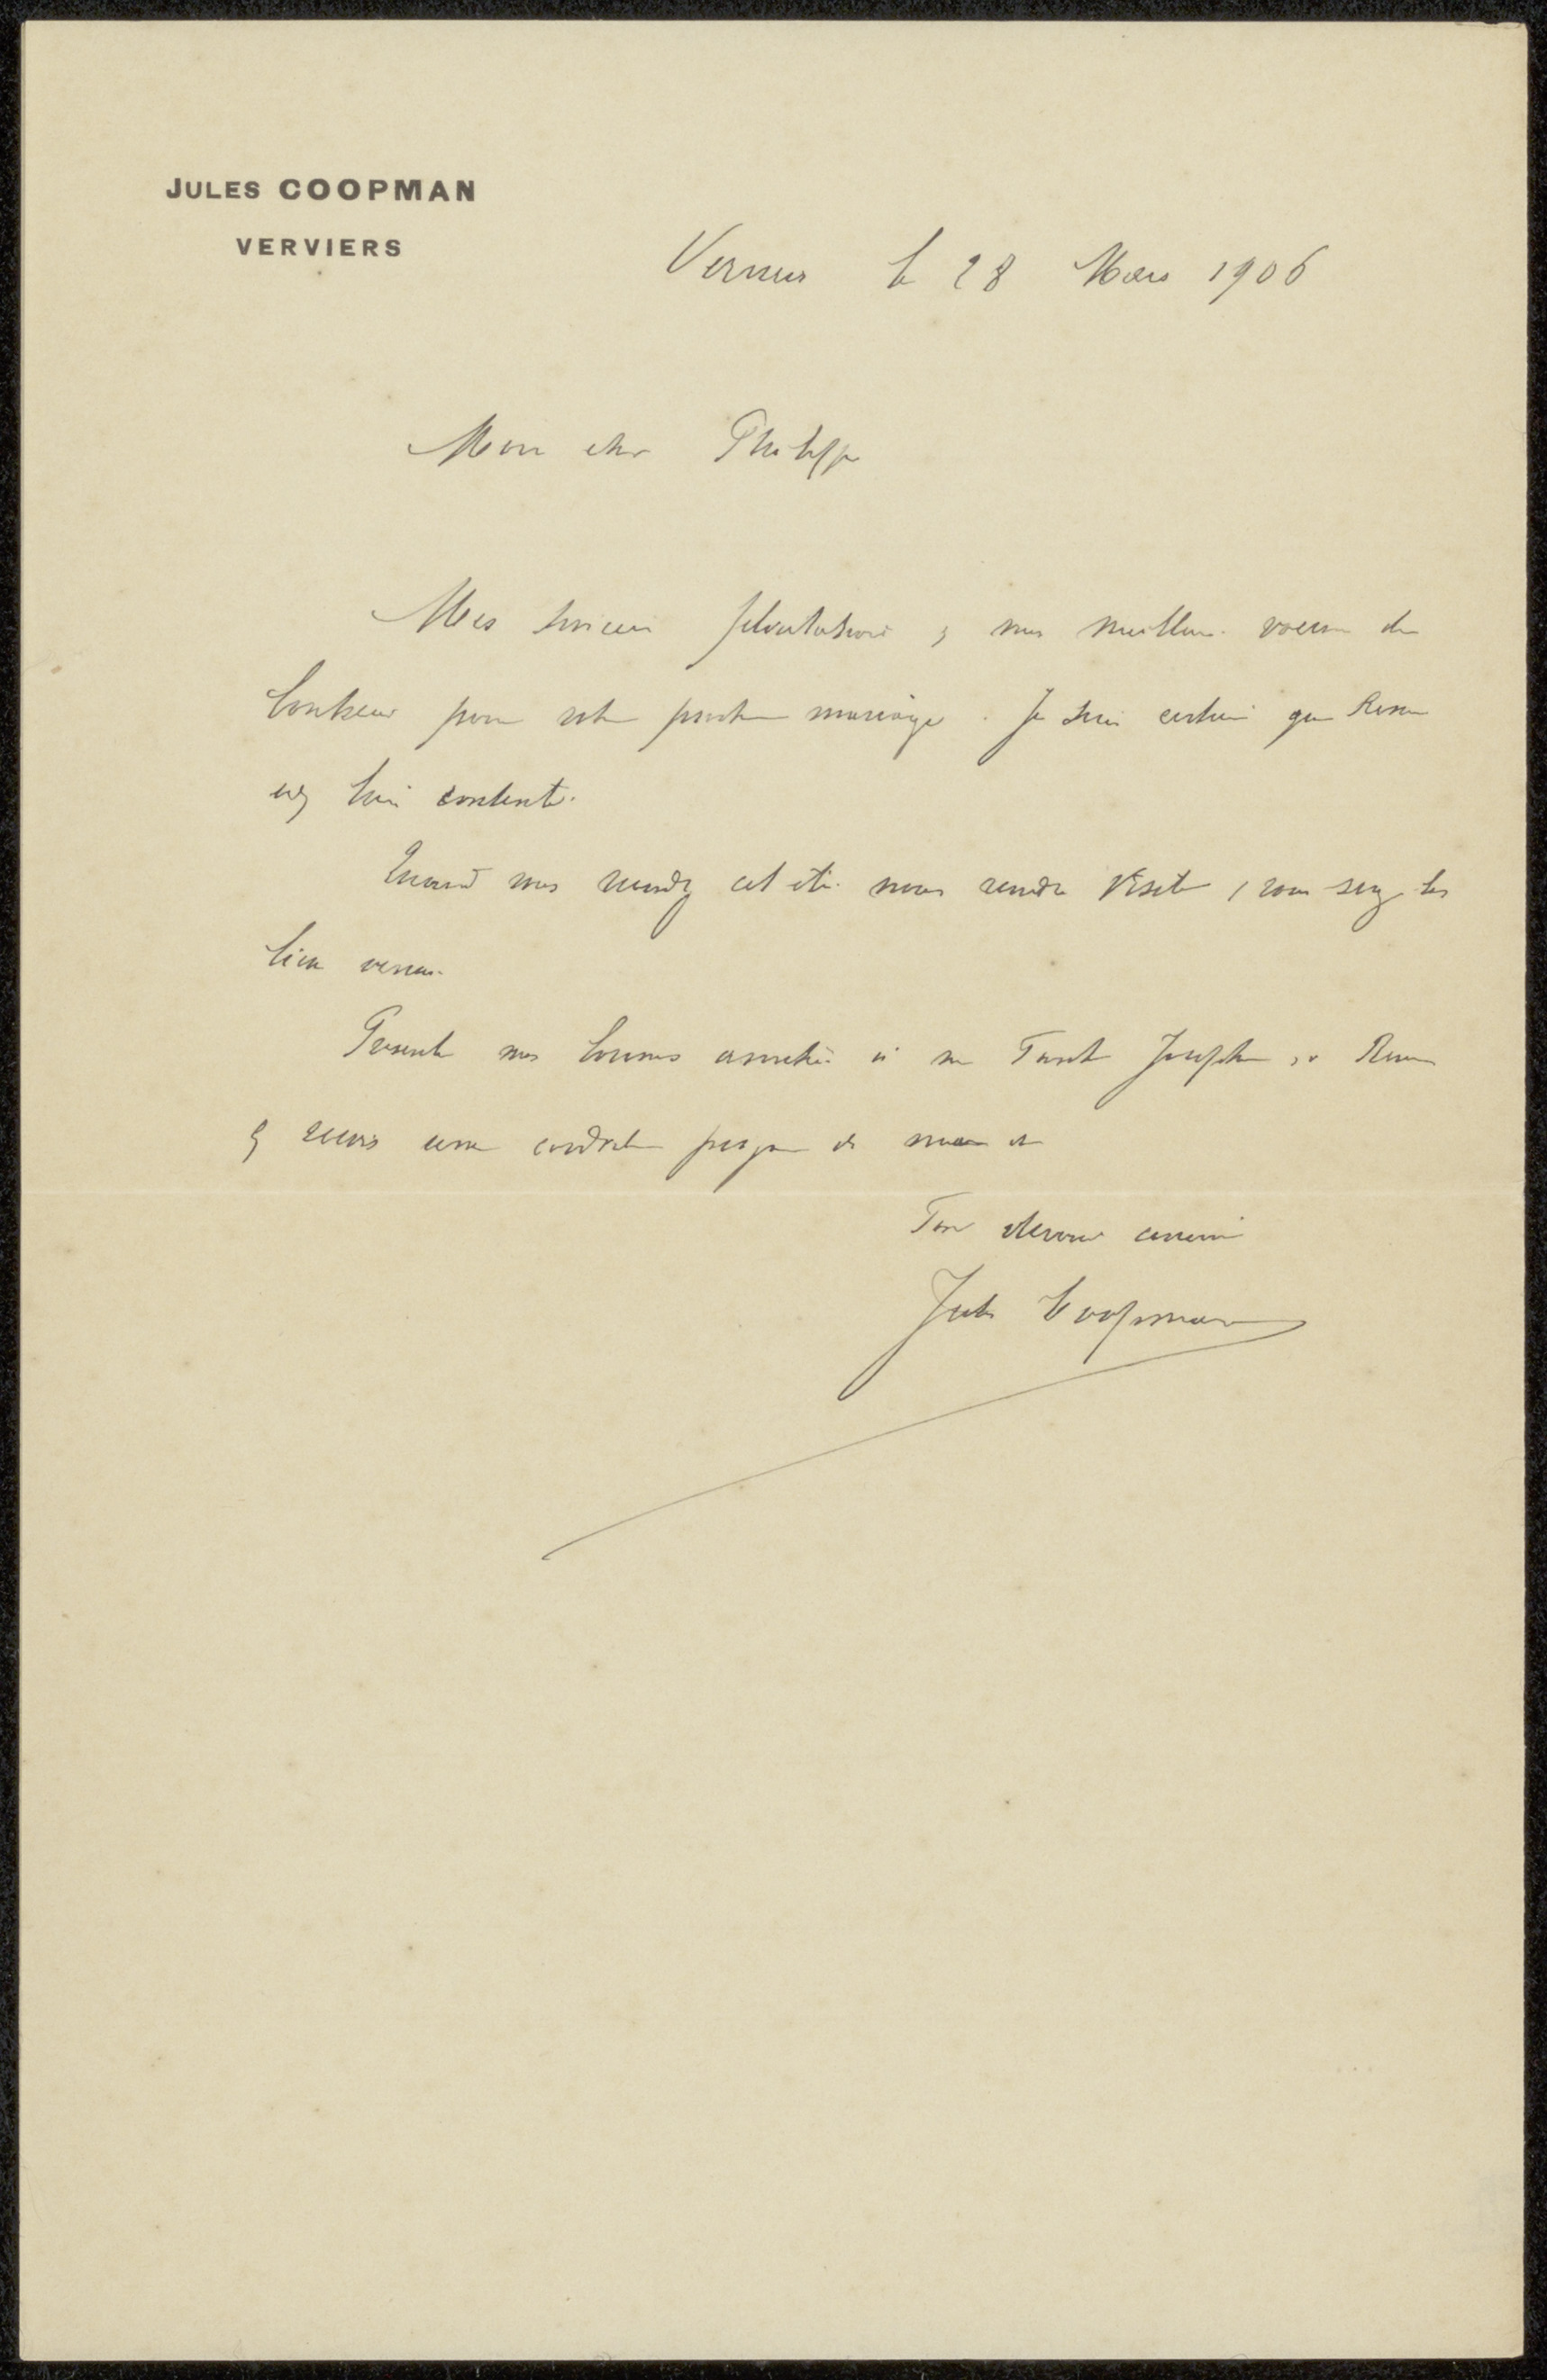 JULES COOPMAN
VERVIERS
Verviers le 28 Mars 1906
Mon cher Philippe
Mes sincères félicitations & mes meilleurs voeux de
bonheur pour votre prochain mariage. Je suis certain que
est bien contente.
Quand vous viendrez cet été nous rendre visite, vous serez les
bien venus.
Présente mes bonnes amitiés à Tante Joséphine
& reçois une cordiale poignée de main de
Ton dévoué ami
Jules Coopman